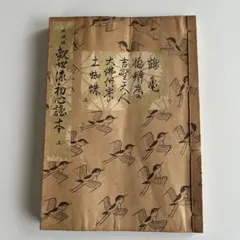 鶴亀
橋弁慶
吉野天人
大佛供養
土蜘蛛
観世流初心謡本 上